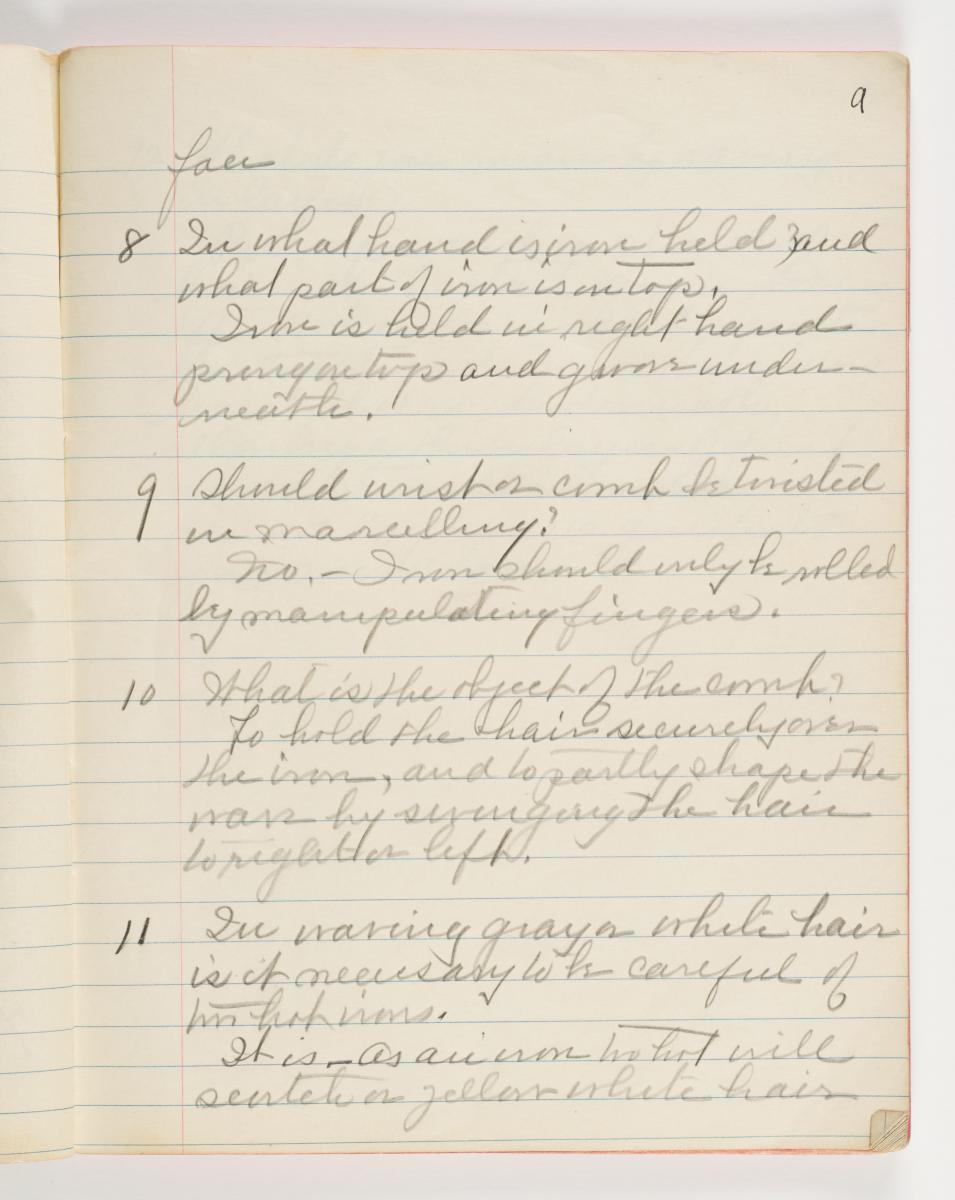 9
face
8 In what hand is iron held, and
what part of iron is on top.
Iron is held in right hand
prong on top and groove under-
neath.
9 Should wrist or comb be twisted
in marcelling?
No. - Iron should only be rolled
by manipulating fingers.
10 What is the object of the comb?
To hold the hair securely over
the iron, and to partly shape the
wave by swinging the hair
to right or left.
11 In waving gray or white hair
is it necessary to be careful of
too hot irons.
It is - as an iron too hot will
scortch or yellow white hair